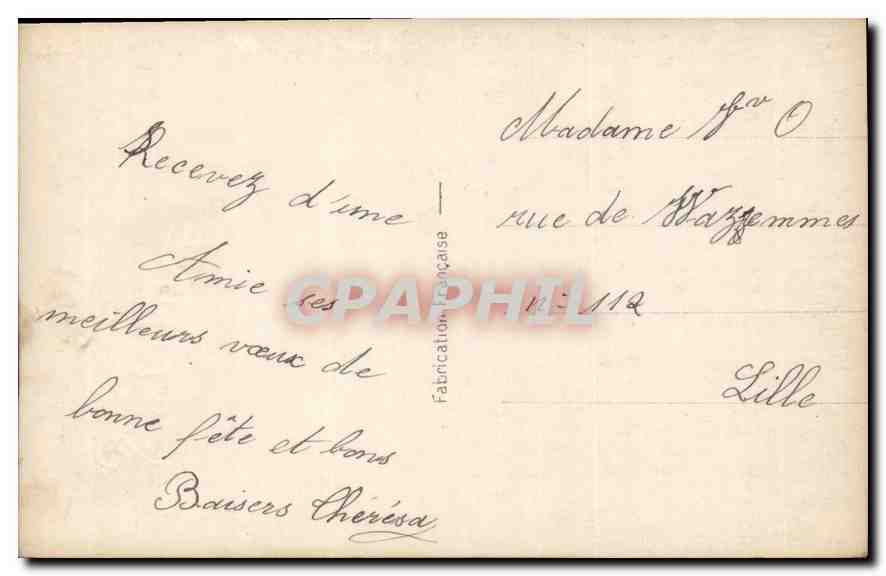 Recevez d'une
Amie ses
meilleurs vœux de
bonne fête et bons
Baisers Thérésa
Fabrication Française
Madame Vv O
rue de Wazemmes
n° 112
Lille
CPAPHIL